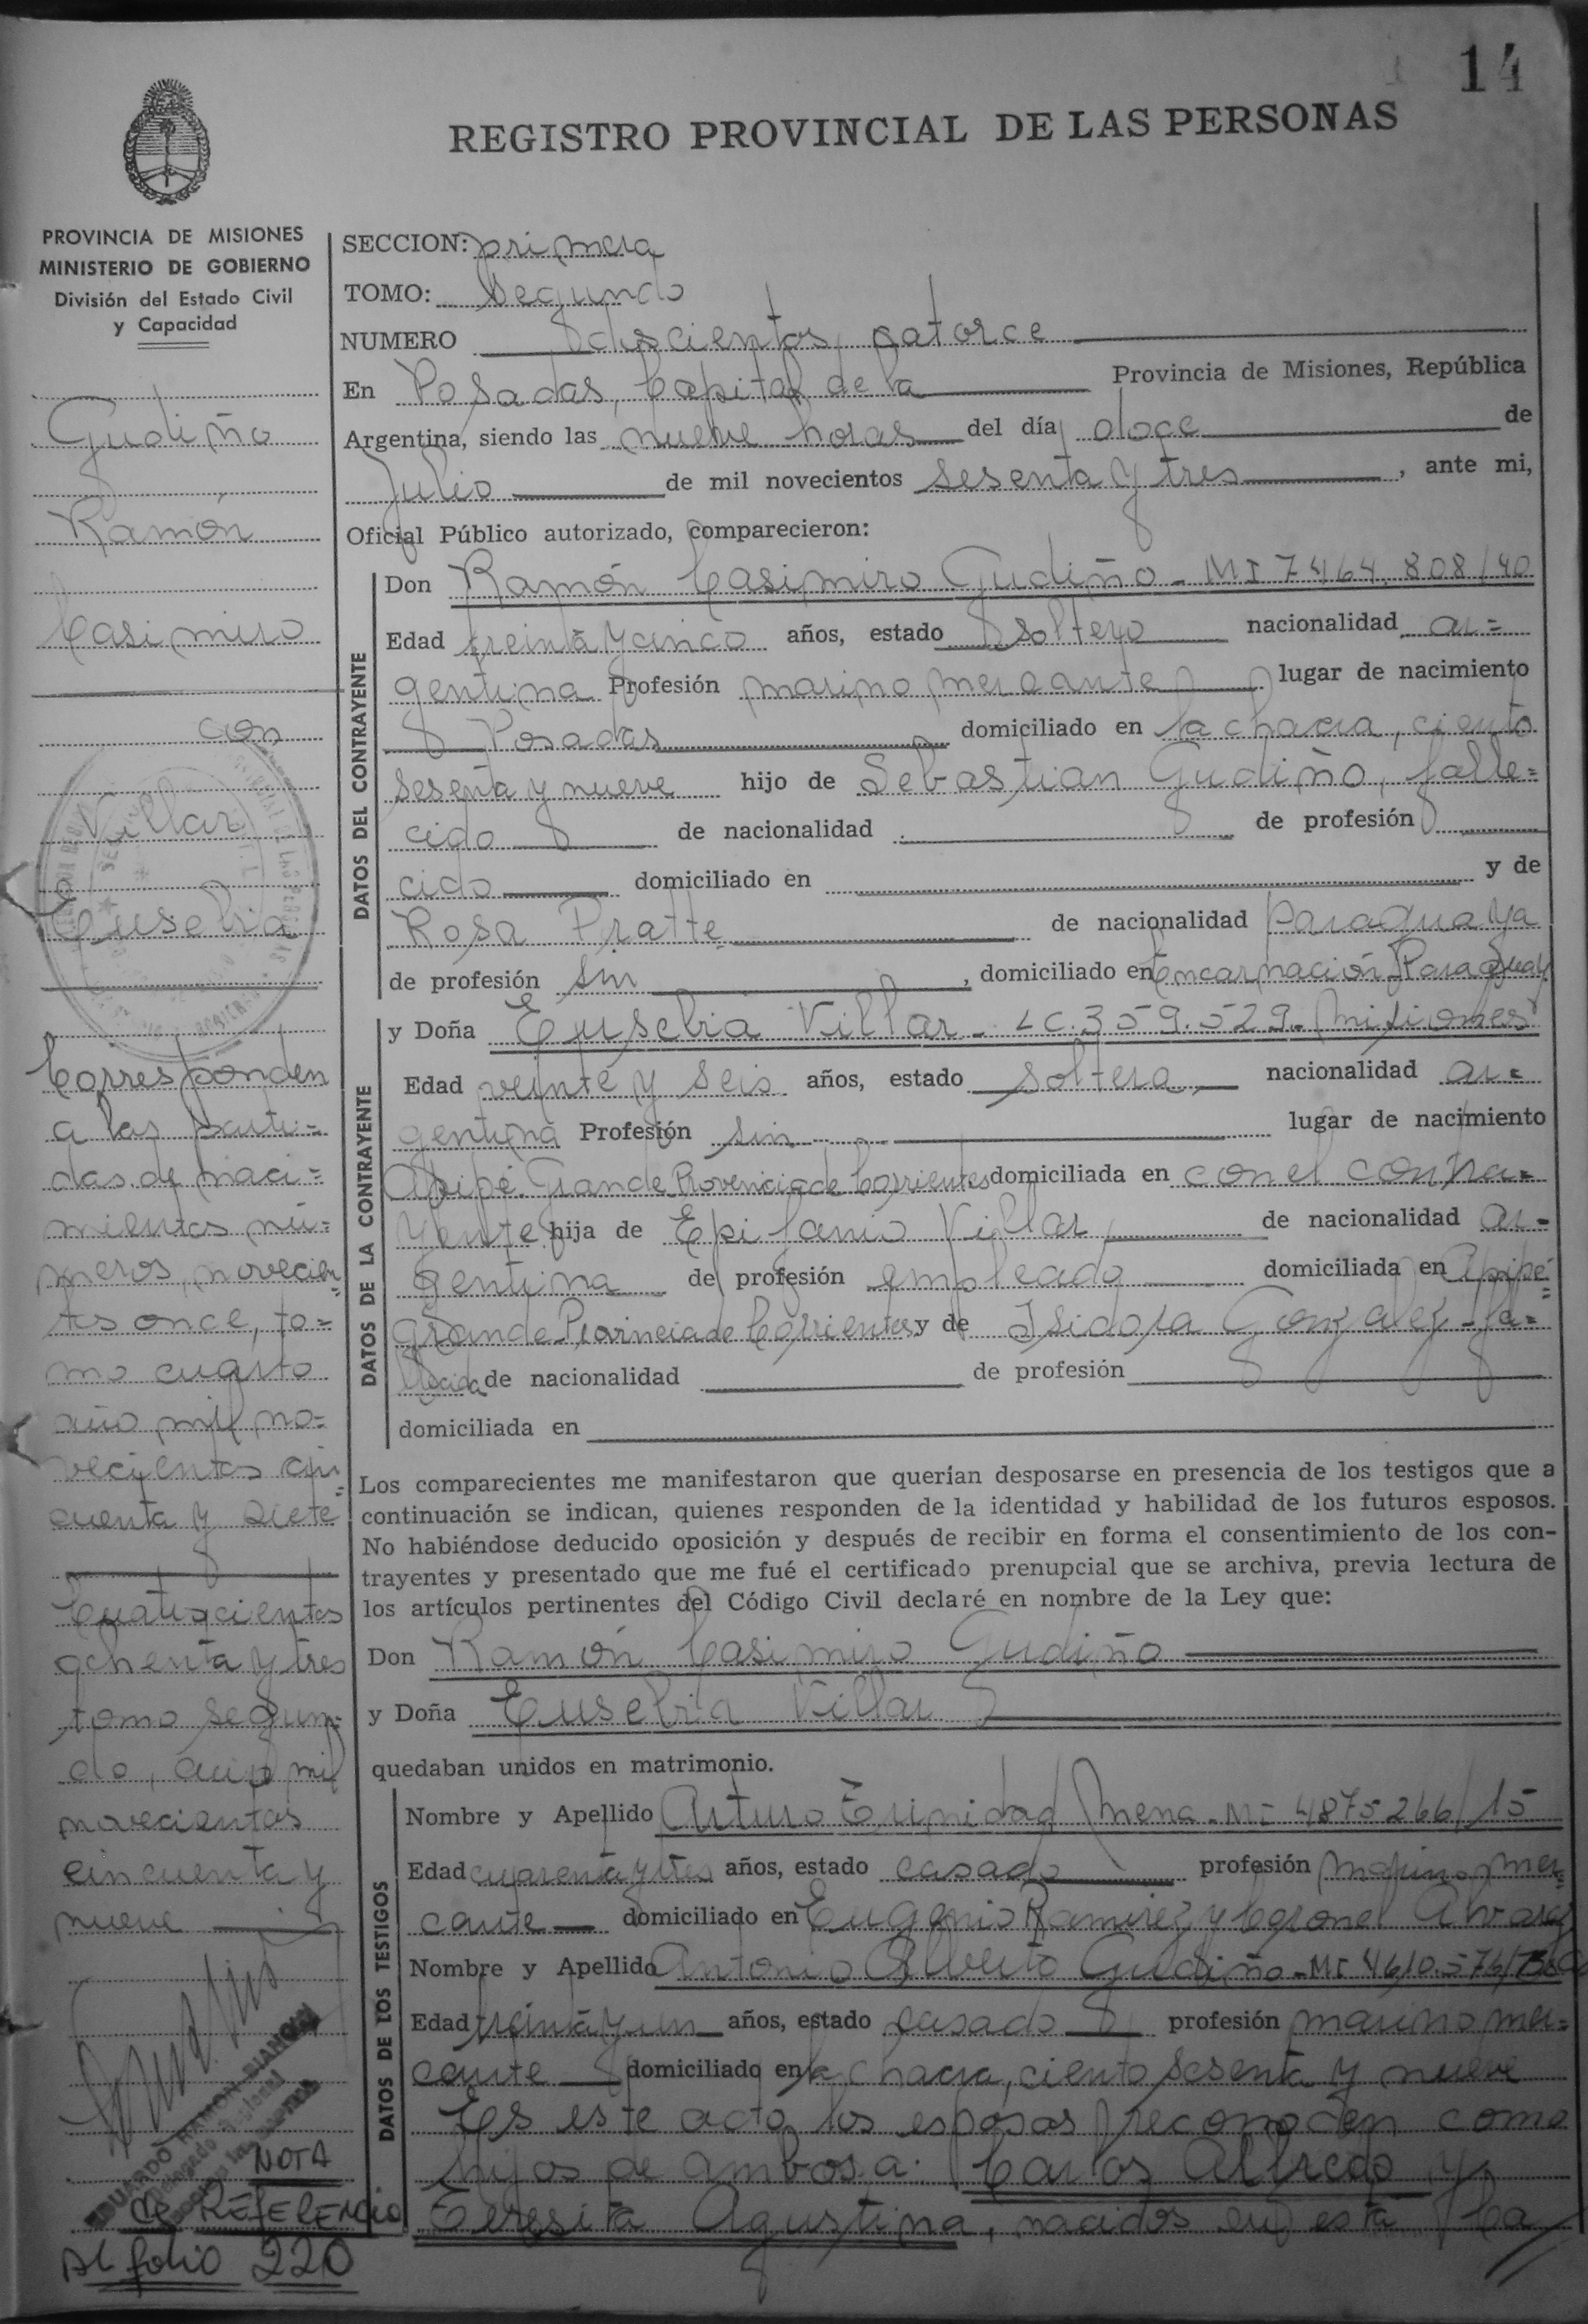 14
REGISTRO PROVINCIAL DE LAS PERSONAS
PROVINCIA DE MISIONES
MINISTERIO DE GOBIERNO
División del Estado Civil
y Capacidad
Gudiño
Ramón
Casimiro
con
Villar
Eusebia
Corresponden
a las parti=
das de naci=
mientos nú=
meros, novecien=
tos once, to=
mo cuarto
año mil no=
vecientos cin=
cuenta y siete
Cuatrocientos
ochenta y tres
tomo segun=
do, año mil
novecientos
cincuenta y
nueve
EDUARDO RAMON BIANCHI
NOTA
de REFERENCIA
Al folio 220
SECCION: primera
TOMO: Segundo
NUMERO doscientos catorce
En Posadas, Capital de la Provincia de Misiones, República
Argentina, siendo las nueve horas del día doce de
Julio de mil novecientos sesenta y tres, ante mi,
Oficial Público autorizado, comparecieron:
DATOS DEL CONTRAYENTE
Don Ramón Casimiro Gudiño - MI 7464.808/40
Edad treinta y cinco años, estado soltero nacionalidad ar=
gentina Profesión marino mercante lugar de nacimiento
Posadas domiciliado en la chacra, ciento
sesenta y nueve hijo de Sebastian Gudiño, falle=
cido de nacionalidad de profesión
cido domiciliado en y de
Rosa Pratte de nacionalidad Paraguaya
de profesión sin, domiciliado en Encarnación Paraguay
DATOS DE LA CONTRAYENTE
y Doña Eusebia Villar - LC. 359.529. Misiones
Edad veinte y seis años, estado soltera, nacionalidad ar=
gentina Profesión sin lugar de nacimiento
Apipé Grande Provincia de Corrientes domiciliada en con el contra=
yente hija de Epifanio Villar, de nacionalidad ar=
gentina de profesión empleado domiciliada en Apipé=
Grande Provincia de Corrientes y de Isidora Gonzalez - fa=
llecida de nacionalidad de profesión
domiciliada en
Los comparecientes me manifestaron que querían desposarse en presencia de los testigos que a
continuación se indican, quienes responden de la identidad y habilidad de los futuros esposos.
No habiéndose deducido oposición y después de recibir en forma el consentimiento de los con-
trayentes y presentado que me fué el certificado prenupcial que se archiva, previa lectura de
los artículos pertinentes del Código Civil declaré en nombre de la Ley que:
Don Ramón Casimiro Gudiño
y Doña Eusebia Villar
quedaban unidos en matrimonio.
DATOS DE LOS TESTIGOS
Nombre y Apellido Arturo Trinidad Mena - MI 4875266/15
Edad cuarenta y tres años, estado casado profesión marino mer=
cante domiciliado en Eugenio Ramirez y Coronel Alvarez
Nombre y Apellido Antonio Alberto Gudiño - MI 4610.576/
Edad treinta y un años, estado casado profesión marino mer=
cante domiciliado en la chacra, ciento sesenta y nueve
En este acto los esposos reconocen como
hijos de ambos a: Carlos Alfredo y
Teresita Agustina, nacidos en esta Ca